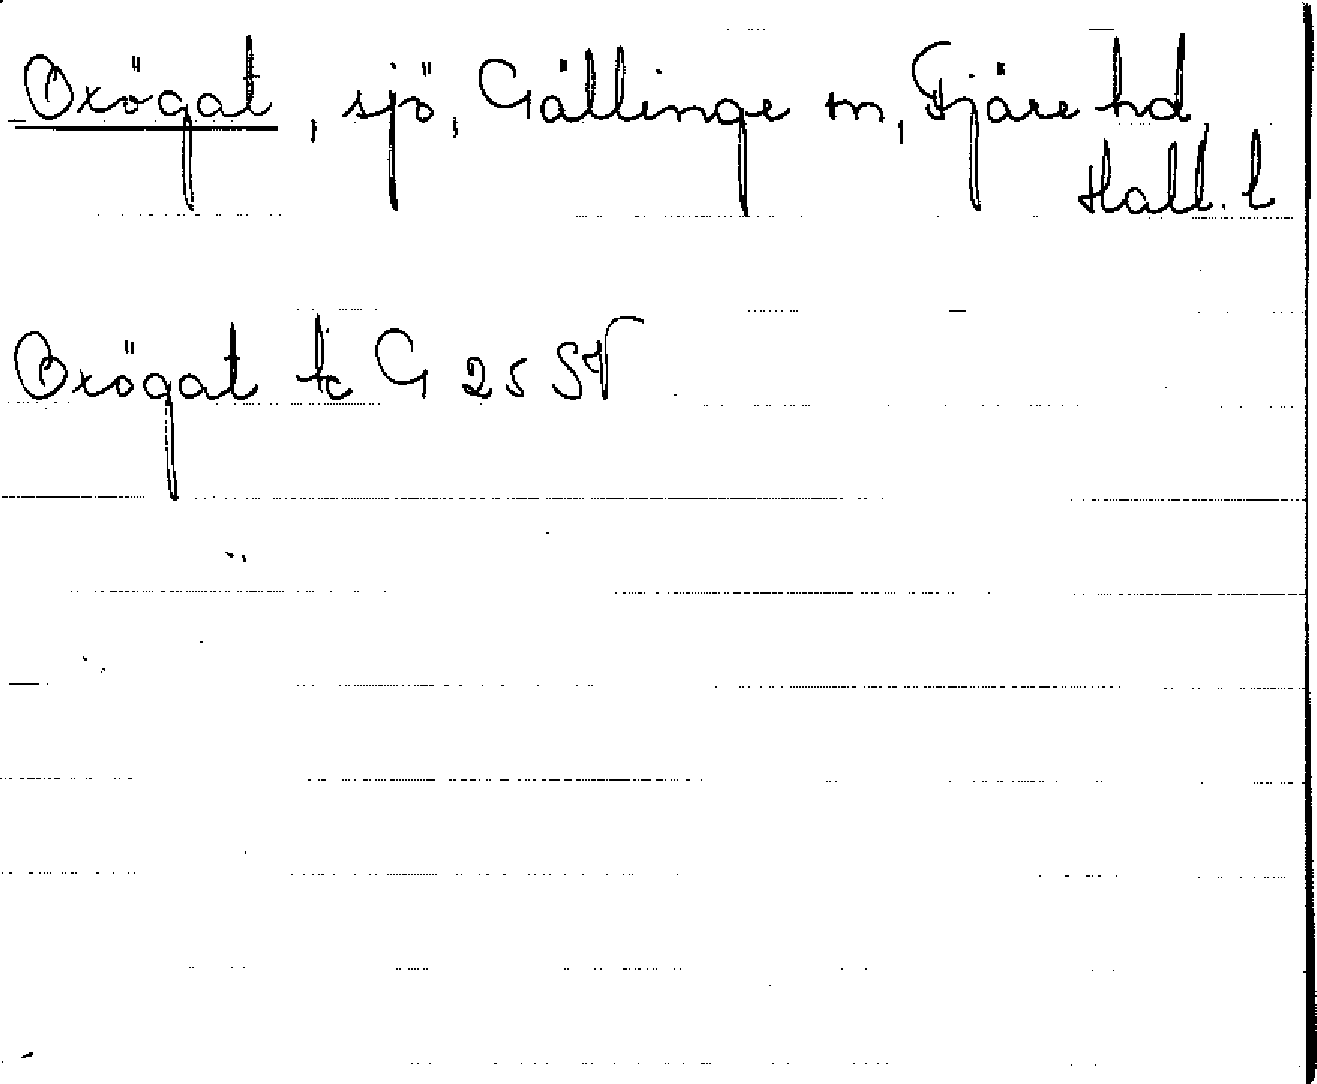 Oxögat, sjö, Gällinge sn, Fjäre hd
Hall. l
Oxögat tc G 25 SV